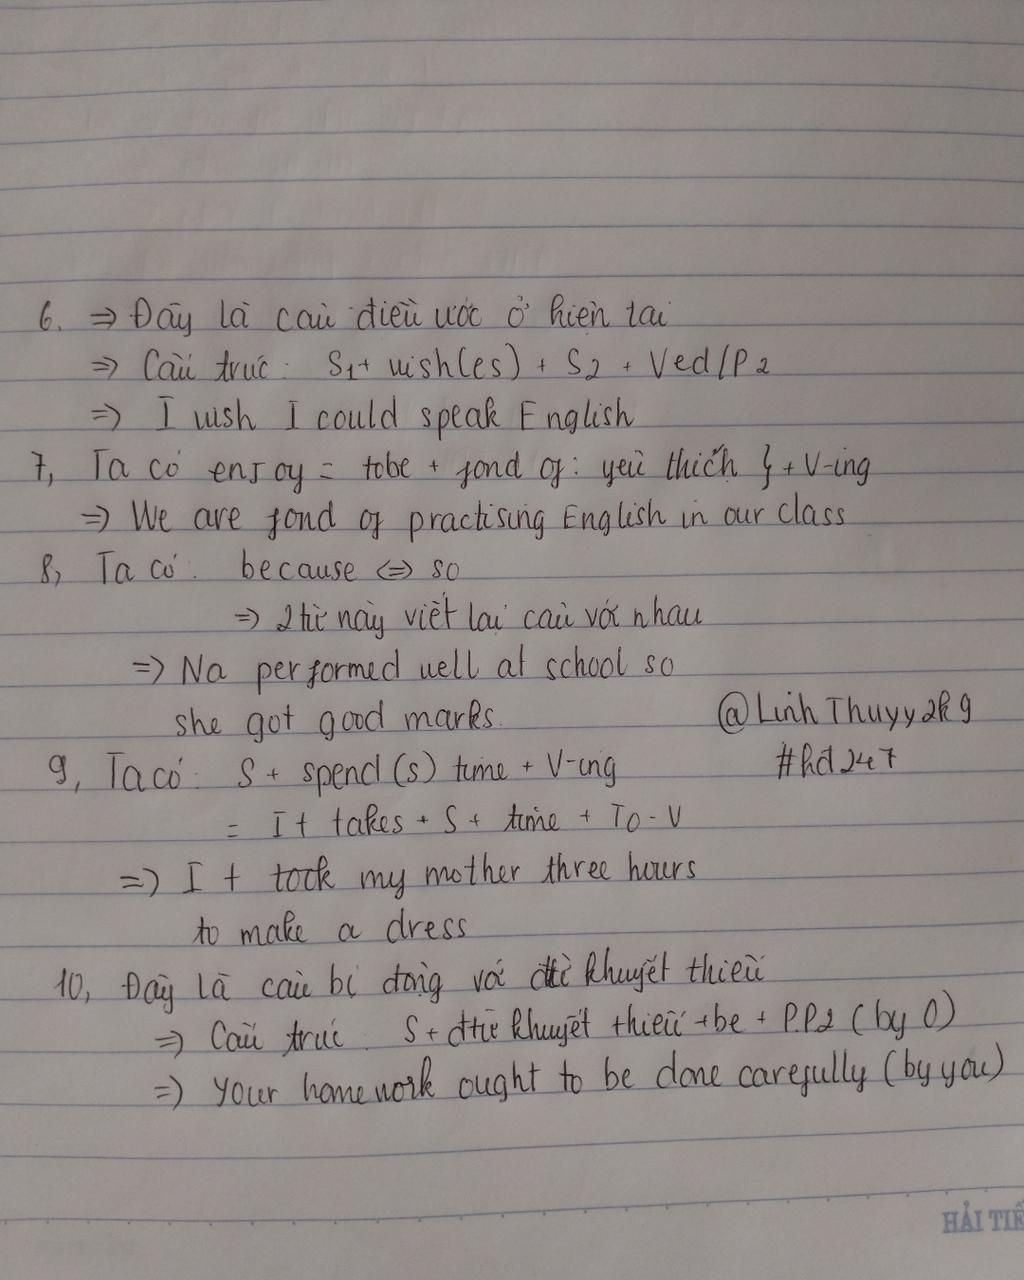 6. => Đây là câu điều ước ở hiện tại
=> Cấu trúc: S1 + wish(es) + S2 + Ved/P2
=> I wish I could speak English
7, Ta có enjoy = tobe + fond of: yêu thích } + V-ing
=> We are fond of practising English in our class
8, Ta có: because <=> so
=> 2 từ này viết lại câu với nhau
=> Na performed well at school so
she got good marks.
@LinhThuyy2k9
#hd247
9, Ta có: S + spend(s) time + V-ing
= It takes + S + time + To-V
=> It took my mother three hours
to make a dress
10, Đây là câu bị động với đtừ khuyết thiếu
=> Cấu trúc: S + đtừ khuyết thiếu + be + P.P2 (by O)
=> Your homework ought to be done carefully (by you)
HẢI TIẾ